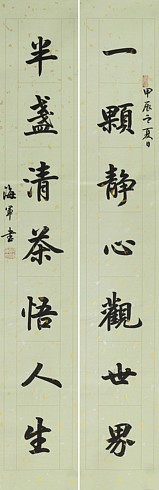 一顆靜心觀世界
甲辰之夏日
半盞清茶悟人生
海軍書